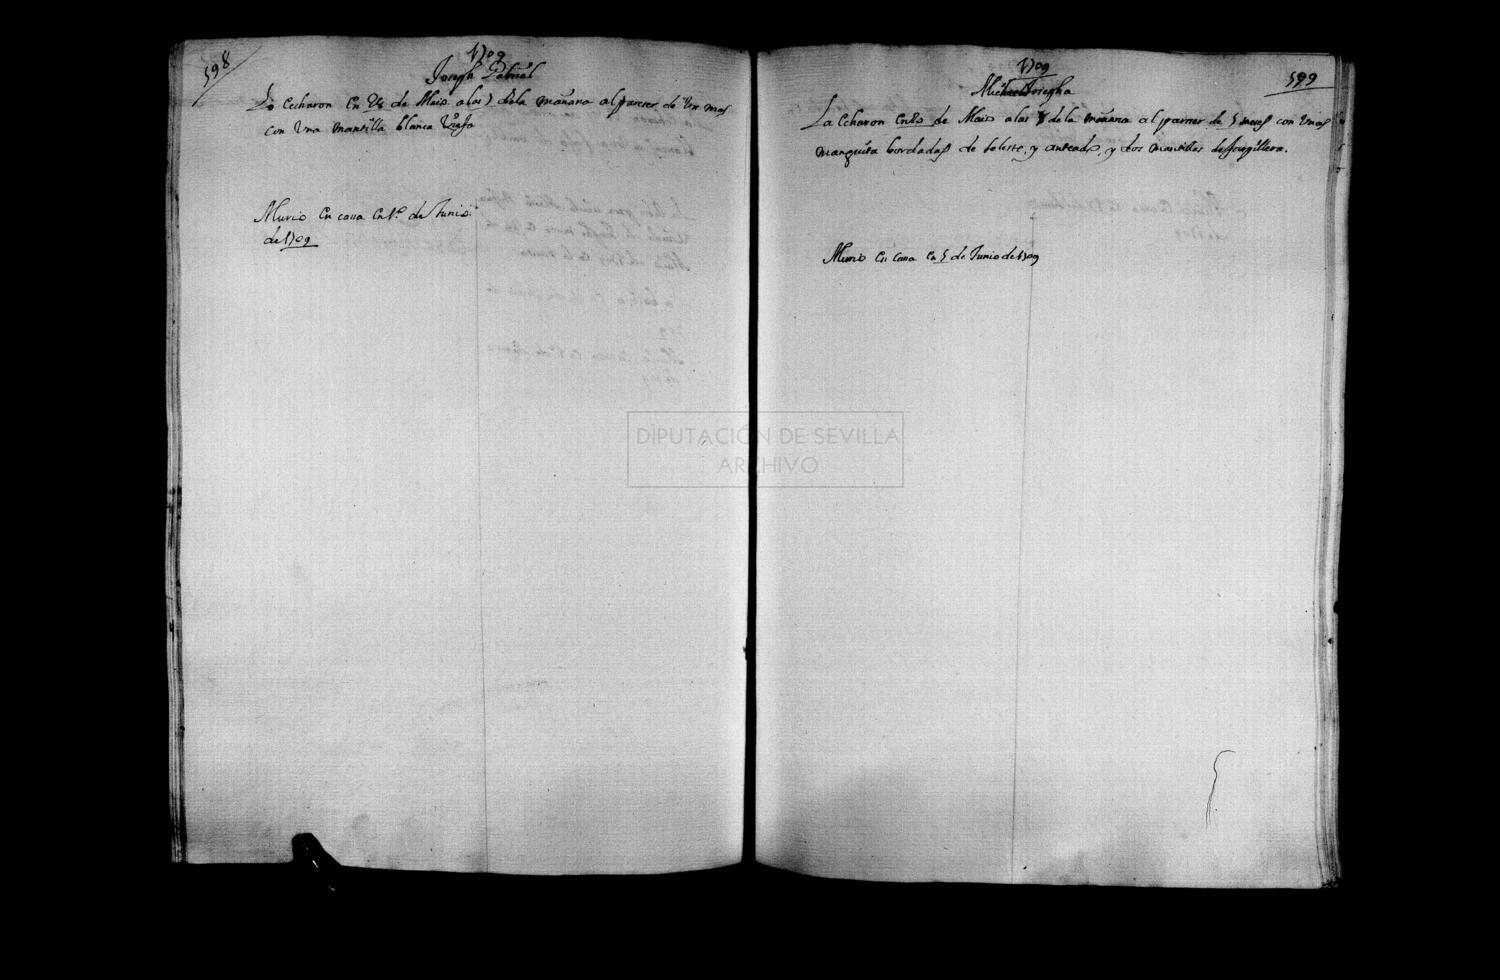 598
1709
Joseph Gabriel
Lo echaron en 24 de Maio a las 7 de la mañana al pareser de Un mes
con Una mantilla blanca Vieja
Murio en cassa en 1º de Junio
de 1709
1709
599
Josepha
La echaron en de Maio a las de la mañana al pareser de 5 meses con Unas
manguita bordadas de seleste, y anteado, y dos mantillas de
Murio en Cassa en 5 de Junio de 1709
DIPUTACIÓN DE SEVILLA
ARCHIVO